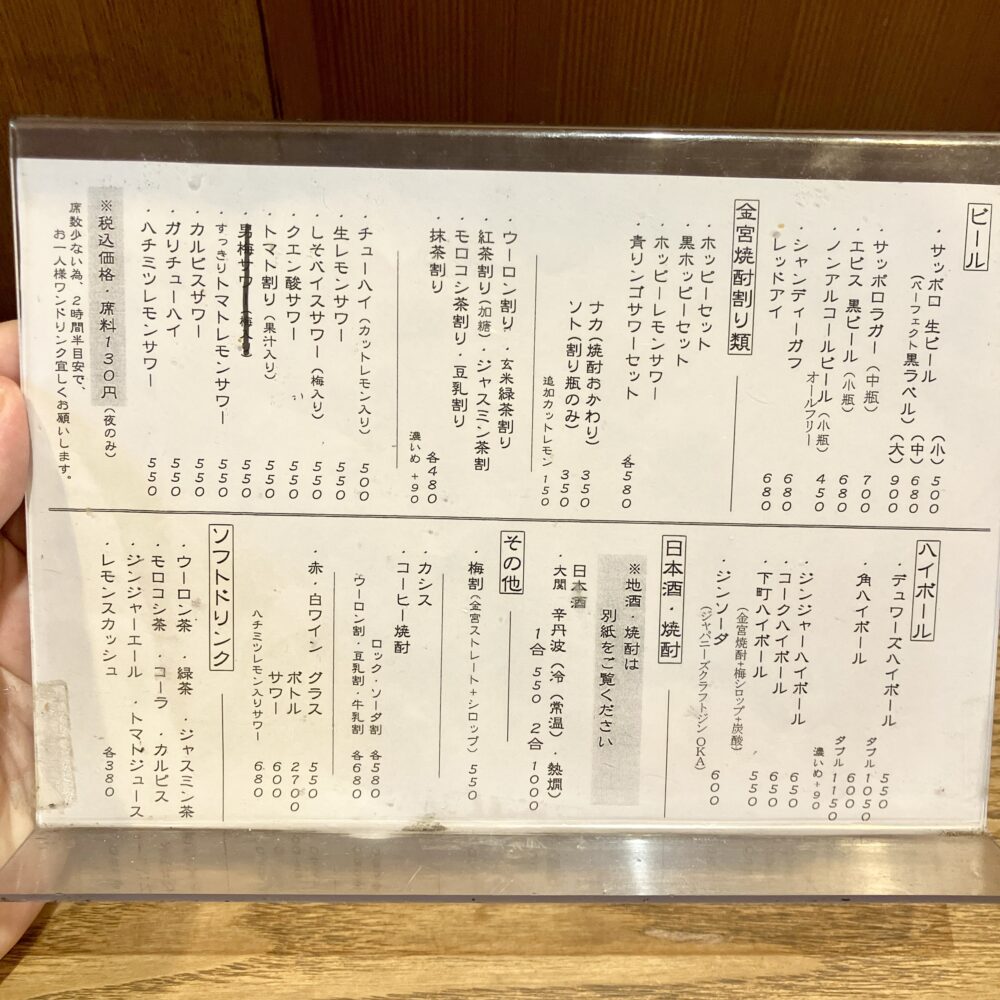 ビール
・サッポロ 生ビール (小) 500
(パーフェクト黒ラベル) (中) 680
(大) 900
・サッポロラガー (中瓶) 700
・エビス 黒ビール (小瓶) 680
・ノンアルコールビール (小瓶) 450
オールフリー
・シャンディーガフ 680
・レッドアイ 680
金宮焼酎割り類
・ホッピーセット
・黒ホッピーセット
・ホッピーレモンサワー
・青リンゴサワーセット
各580
ナカ (焼酎おかわり) 350
ソト (割り瓶のみ) 350
追加カットレモン 150
・ウーロン割り ・玄米緑茶割り
・紅茶割り (加糖) ・ジャスミン茶割
・モロコシ茶割り ・豆乳割り
・抹茶割り 各480
濃いめ +90
・チューハイ (カットレモン入り) 500
・生レモンサワー 550
・しそバイスサワー (梅入り) 550
・クエン酸サワー 550
・トマト割り (果汁入り) 550
・男梅サワー (梅入り) 550
・すっきりトマトレモンサワー 550
・カルピスサワー 550
・ガリチューハイ 550
・ハチミツレモンサワー 550
※税込価格・席料130円 (夜のみ)
席数少ない為、2時間半目安で、
お一人様ワンドリンク宜しくお願いします。
ハイボール
・デュワーズハイボール 550
ダブル 1050
・角ハイボール 600
ダブル 1150
濃いめ +90
・ジンジャーハイボール 650
・コークハイボール 650
・下町ハイボール 550
(金宮焼酎+梅シロップ+炭酸)
・ジンソーダ 600
(ジャパニーズクラフトジン OKA)
日本酒・焼酎
※地酒・焼酎は
別紙をご覧ください
日本酒
・大関 辛丹波 (冷 (常温)・熱燗)
1合 550 2合 1000
その他
・梅割 (金宮ストレート+シロップ) 550
・カシス
・コーヒー焼酎
ロック・ソーダ割 各580
ウーロン割・豆乳割・牛乳割 各680
・赤・白ワイン グラス 550
ボトル 2700
サワー 600
ハチミツレモン入りサワー 680
ソフトドリンク
・ウーロン茶 ・緑茶 ・ジャスミン茶
・モロコシ茶 ・コーラ ・カルピス
・ジンジャーエール ・トマトジュース
・レモンスカッシュ 各380